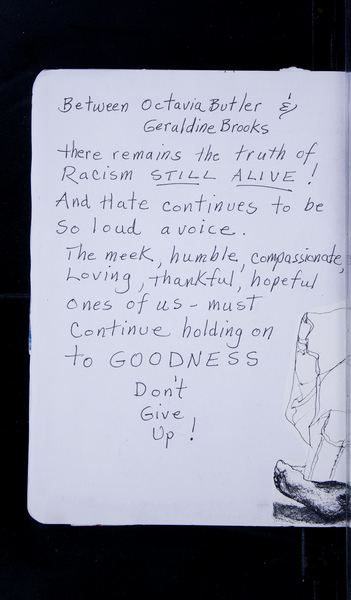 Between Octavia Butler &
Geraldine Brooks
there remains the truth of
Racism STILL ALIVE!
And Hate continues to be
so loud a voice.
The meek, humble, compassionate,
Loving, thankful, hopeful
ones of us - must
Continue holding on
to GOODNESS
Don't
Give
Up!